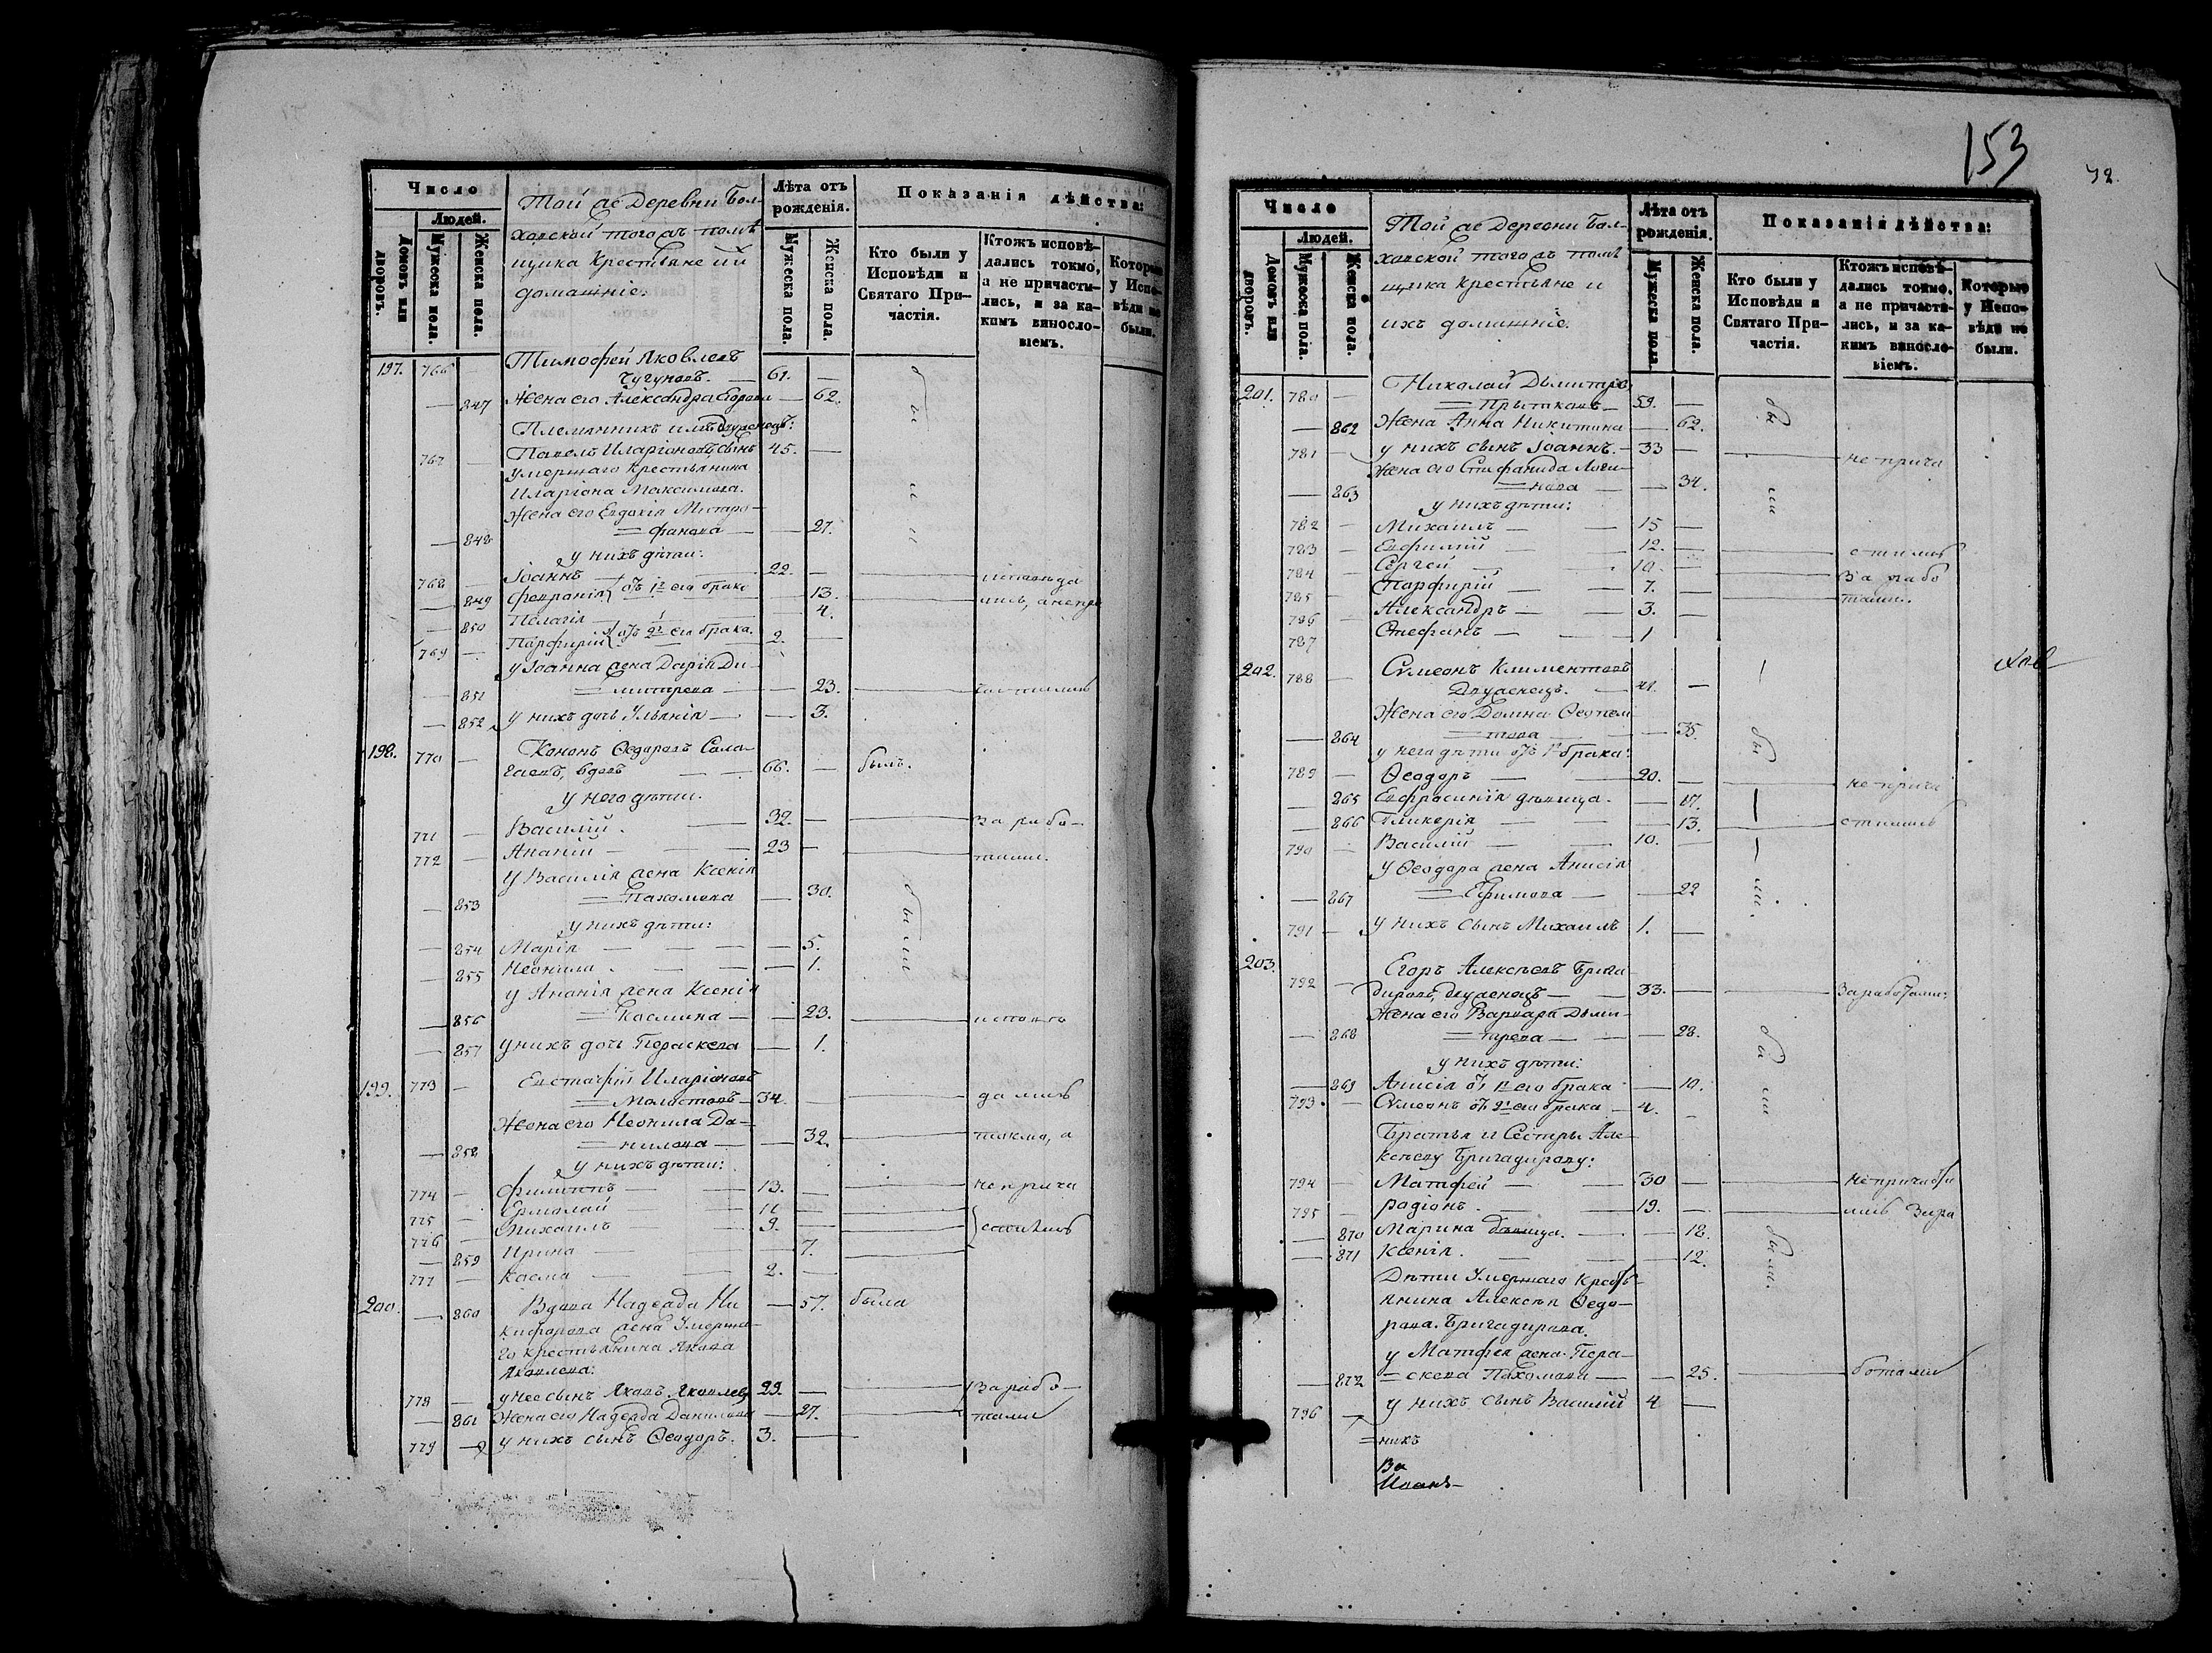 Число
Людей.
Домовъ или дворовъ.
Мужеска пола.
Женска пола.
Той же Деревни Бол-
ховской того жъ помѣ
щика Крестьяне и ихъ
домашніе.
Лѣта отъ рожденія.
Мужеска пола.
Женска пола.
Показанія дѣйства:
Кто были у Исповѣди и Святаго Причастія.
Ктожъ исповѣдались токмо, а не причастились, и за какимъ винословіемъ.
Которые у Исповѣди не были.
197. 766 — Тимофей Яковлевъ
Чугуновъ. — 61. —
— 847 Жена его Александра — 62.
Племянникъ имъ двужонецъ:
767 — Павелъ Иларіоновъ сынъ 45. —
умершаго Крестьянина
Иларіона Максимова.
Жена его Евдокія Митро-
— 848 = фанова — — 27.
у нихъ дѣти:
768 — Іоаннъ — 22. — исповѣда
— 849 Февронія отъ 1го его брака — 13. лись, а не при
— 850 Пелагія — 4.
769 — Парфирій отъ 2го его брака. 2. —
у Іоанна жена Дарія Ди-
— 851 = митрева — — 23. — частились
— 852 у нихъ дочь Ульянія — — 3.
198. 770 — Кононъ Ѳедоровъ Сало-
вдовъ — 66. — былъ.
у него дѣти.
771 — Василій. — 32. — за рабо-
772 — Ананій — 23 — тами.
У Василія жена Ксенія
— 853 = Пахомова — 30. были
у нихъ дѣти:
— 854 Марія — — 5.
— 855 Неонила. — — 1.
у Ананія жена Ксенія
— 856 = Космина — — 23. — исповѣ
— 857 у нихъ дочь Параскева — 1.
199. 773 — Евстафій Иларіоновъ
= Молостовъ — 34. — дались
Жена его Неонила Да-
— 858 = нилова — — 32. — токмо, а
у нихъ дѣти:
774 — Филиппъ — 13. — не прича
775 — Ермолай — 11 —
776 — Михаилъ — 9. — стились
— 859 Ирина — — 7.
777 — Косма — 2. —
200. — 860 Вдова Надежда Ни — 57. была
кифорова жена Умерша-
го крестьянина Якова
Яковлева:
778 — у нее сынъ Яковъ Яковлевъ 29. — За рабо-
— 861 Жена его Надежда Данилова — 27. — тами
779 — у нихъ сынъ Ѳеодоръ. 3. —
153
72.
Число
Людей.
Домовъ или дворовъ.
Мужеска пола.
Женска пола.
Той же Деревни Бол-
ховской того жъ помѣ
щика Крестьяне и
ихъ домашніе.
Лѣта отъ рожденія.
Мужеска пола.
Женска пола.
Показанія дѣйства:
Кто были у Исповѣди и Святаго Причастія.
Ктожъ исповѣдались токмо, а не причастились, и за какимъ винословіемъ.
Которые у Исповѣди не были.
201. 780 — Николай Дмитріе
= Прытковъ — 59. — бы
— 862 Жена Анна Никитина — 62.
781 — у нихъ сынъ Іоаннъ. — 33 — не прича
Жена его Стефанида Логи-
— 863 = нова — — 34. ли
у нихъ дѣти:
782 — Михаилъ — 15 —
783 — Евфимій 12. — стились
784 — Сергей 10. — За рабо
785 — Парфирій — 7. — тами.
786 — Александръ — 3. —
787 Стефанъ — 1
202. 788 — Сѵмеонъ Климентовъ
Двуженецъ. — 41. —
Жена его Домна Ѳеопем-
— 864 = това — 35. бы
у него дѣти отъ 1го брака:
789 — Ѳеодоръ — 20. — не прича
— 865 Евфросинія дѣвица. — 17.
— 866 Гликерія — 13. — стились
790 — Василій — 10. —
у Ѳеодора жена Анисія
— 867 = Ефимова — — 22 ли.
791 — у нихъ сынъ Михаилъ 1. —
203.
792 — Егоръ Алексѣевъ Брига
дировъ, двуженецъ — 33. — За работами:
Жена его Варвара Дми-
— 868 = трева — — 28. бы
у нихъ дѣти:
— 869 Анисія отъ 1го его брака — 10. ли
793 — Сѵмеонъ отъ 2го его брака — 4. —
Братья и Сестры Але-
ксѣеву Бригадирову:
794 — Матфей — 30 — не причасти
795 — Родіонъ. — 19. — лись За ра
— 870 Марина дѣвица. — 18. были.
— 871 Ксенія. — 12.
Дѣти Умершаго Кресть-
янина Алексѣя Ѳедо-
рова Бригадирова.
у Матфея жена Пара-
— 872 = скева Пахомова — — 25. — ботами
796 — у нихъ сынъ Василій 4 —
= никъ
Іоаннъ